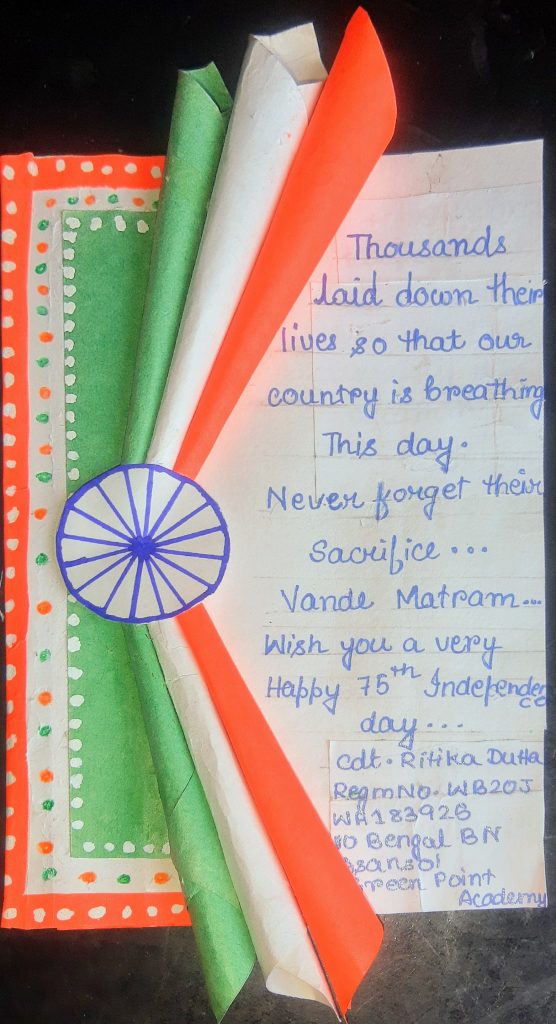 Thousands
laid down their
lives so that our
country is breathing
This day.
Never forget their
Sacrifice...
Vande Matram...
Wish you a very
Happy 75th Independence
day...
Cdt. Ritika Dutta
Regm No. WB20J
WA183926
10 Bengal BN
Assansol
Green Point
Academy